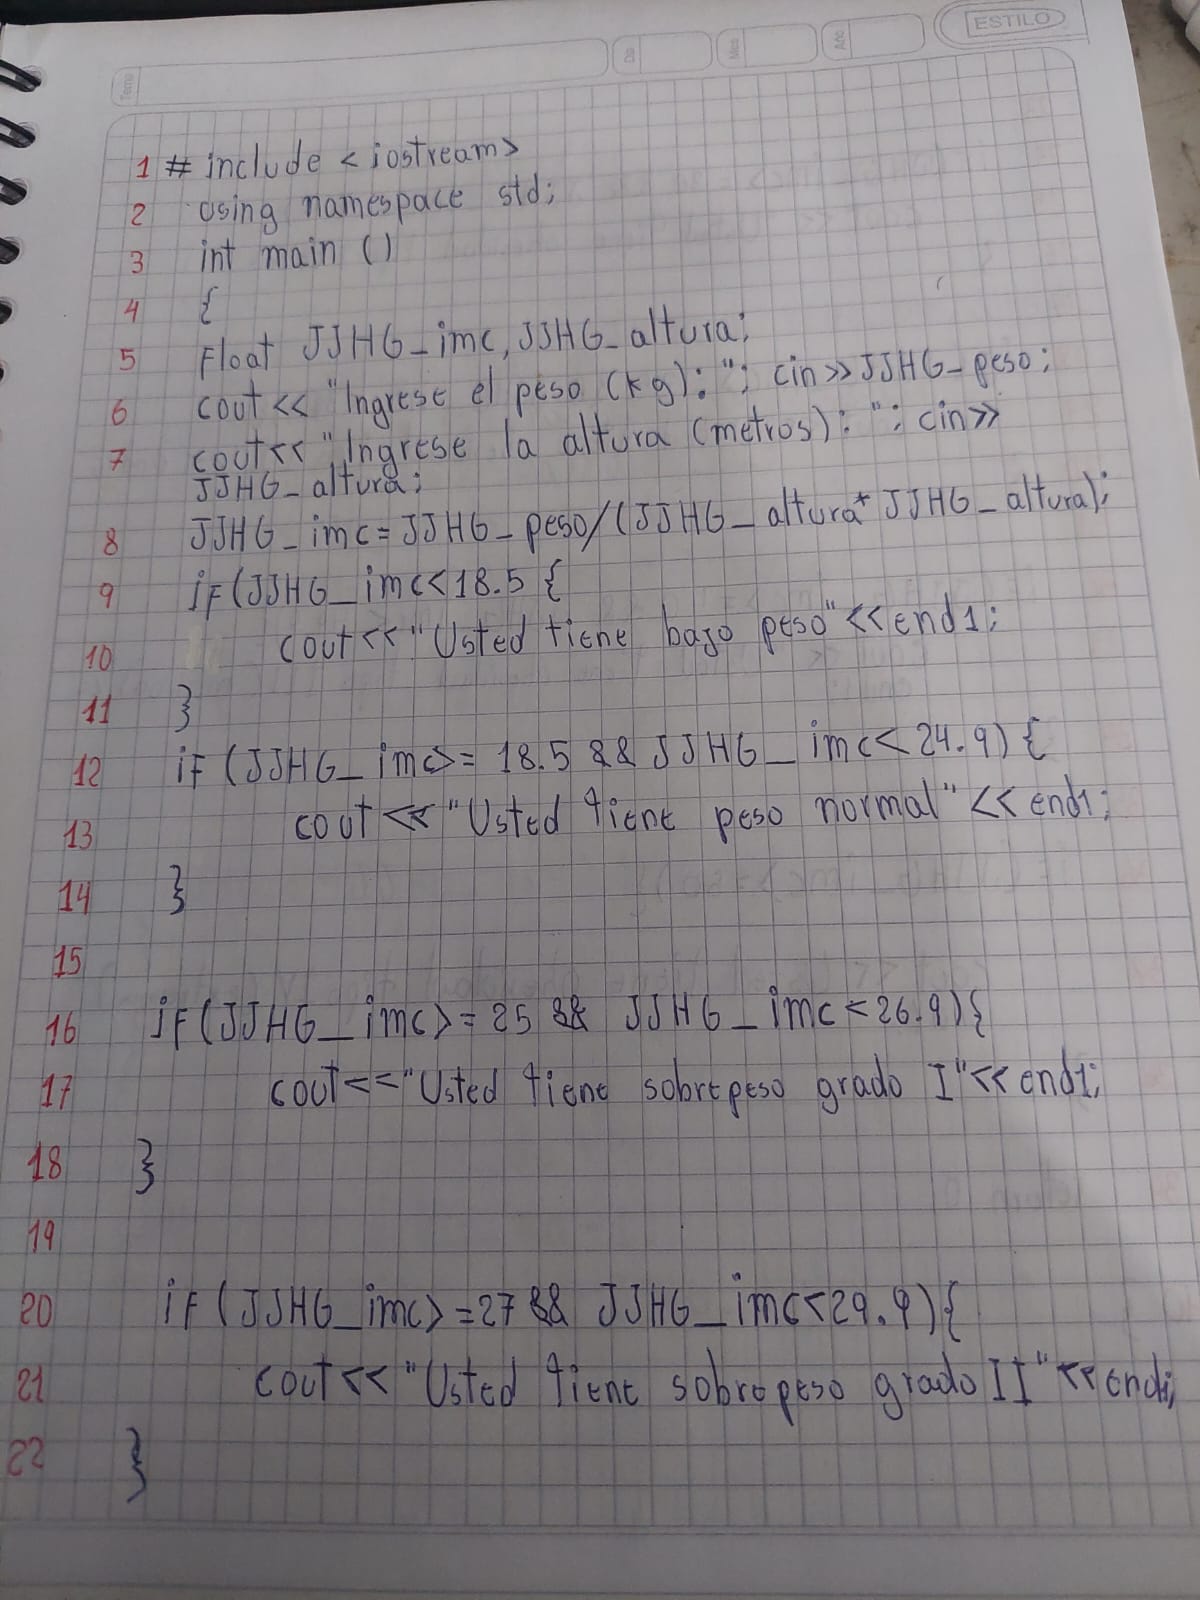 ESTILO
Tema
Día
Mes
Año
1 # include <iostream>
2 using namespace std;
3 int main ()
4 {
5 Float JJHG_imc, JJHG_altura;
6 cout << "Ingrese el peso (kg): "; cin>> JJHG_peso;
7 cout<< "Ingrese la altura (metros): "; cin>>
JJHG_altura;
8 JJHG_imc = JJHG_peso/(JJHG_altura* JJHG_altura);
9 iF(JJHG_imc<18.5 {
10 cout<<"Usted tiene bajo peso"<<end1;
11 }
12 iF (JJHG_imc>= 18.5 && JJHG_imc< 24.9) {
13 cout <<"Usted tiene peso normal"<<end1;
14 }
15
16 iF(JJHG_imc>=25 && JJHG_imc<26.9){
17 cout<<"Usted tiene sobrepeso grado I"<<end1;
18 }
19
20 iF(JJHG_imc>=27 && JJHG_imc<29.9){
21 cout<<"Usted tiene sobrepeso grado II"<<end1;
22 }